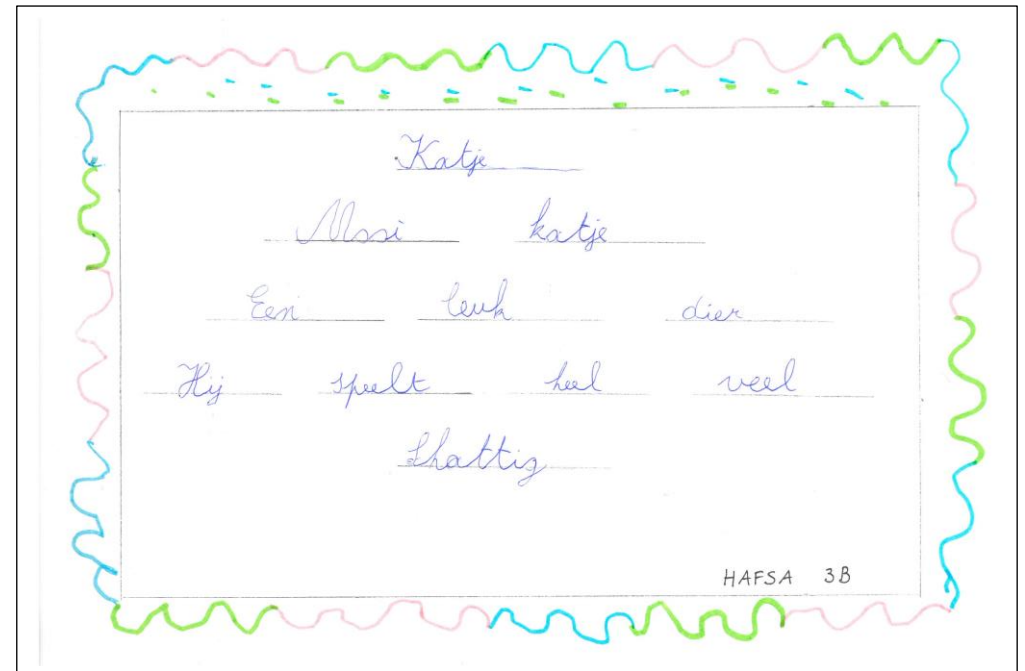 Katje
Mooi katje
Een leuk dier
Hij speelt heel veel
Shattig
HAFSA 3B